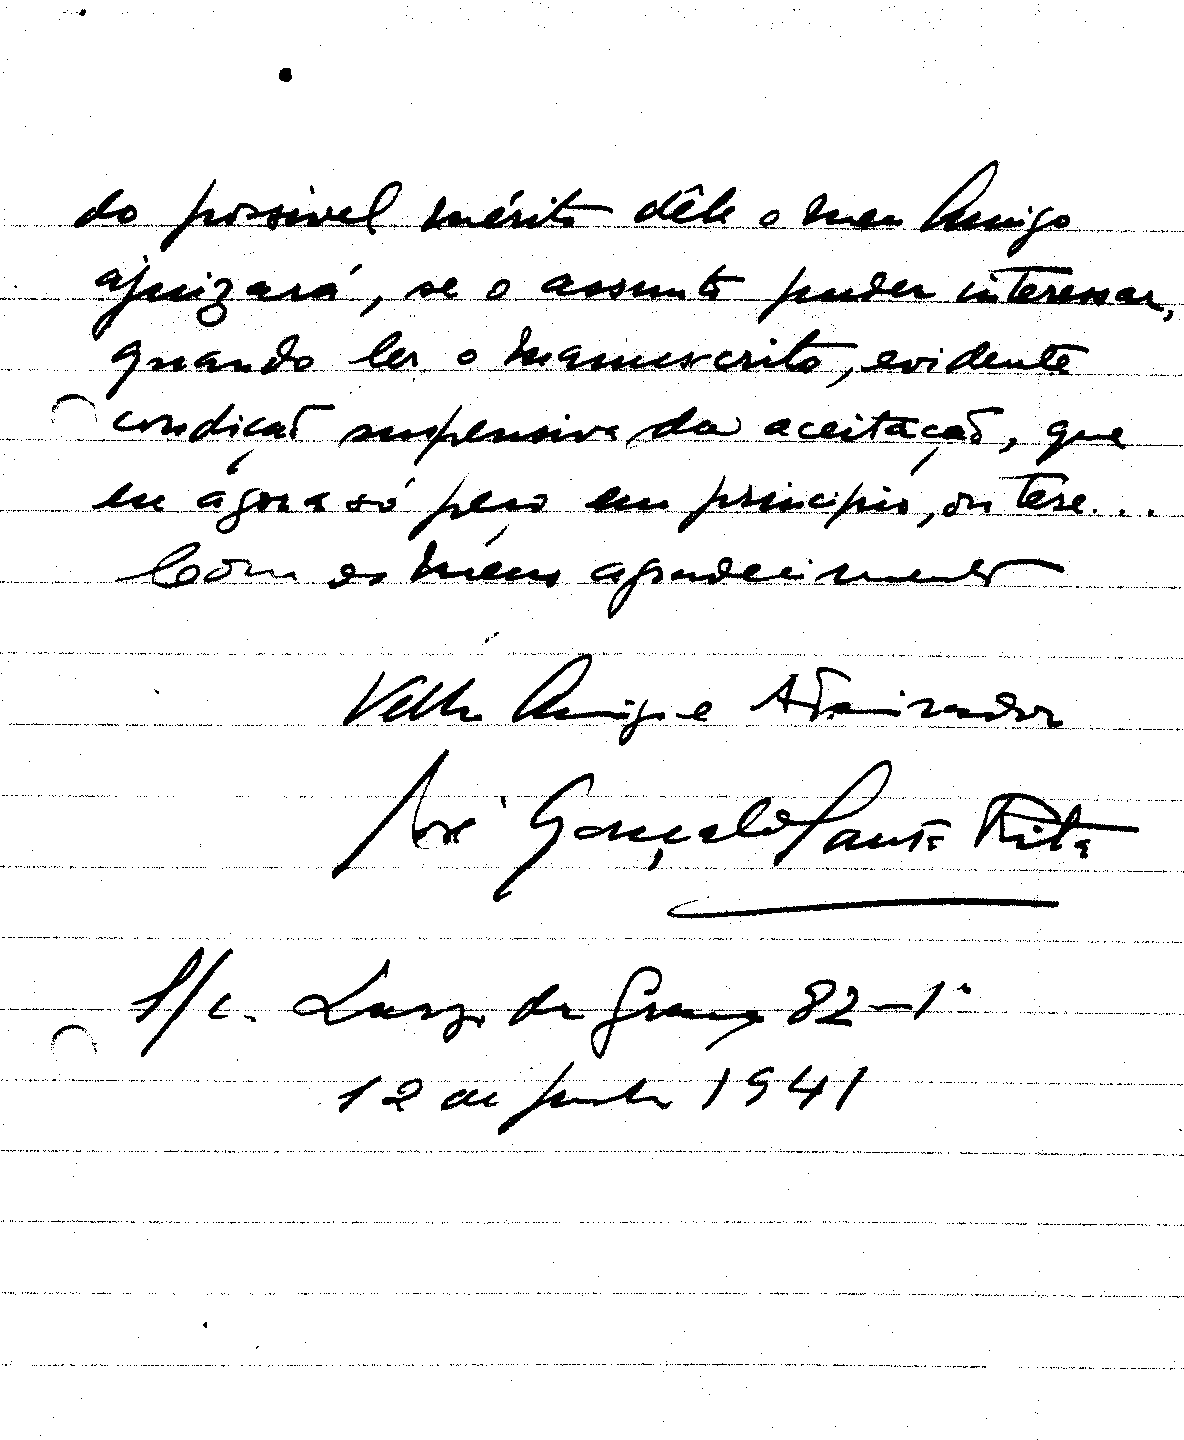 do possivel mérito dêle o meu Amigo
ajuizará, se o assunto puder interessar,
quando ler o manuscrito, evidente
condição suspensiva da aceitação, que
eu ágora só peço em principio, ou tese...
Com os meus agradecimentos
Velho Amigo e Admirador
José Gonçalo Santa Rita
S/c. Largo da Graça 82-1º
12 de junho 1941